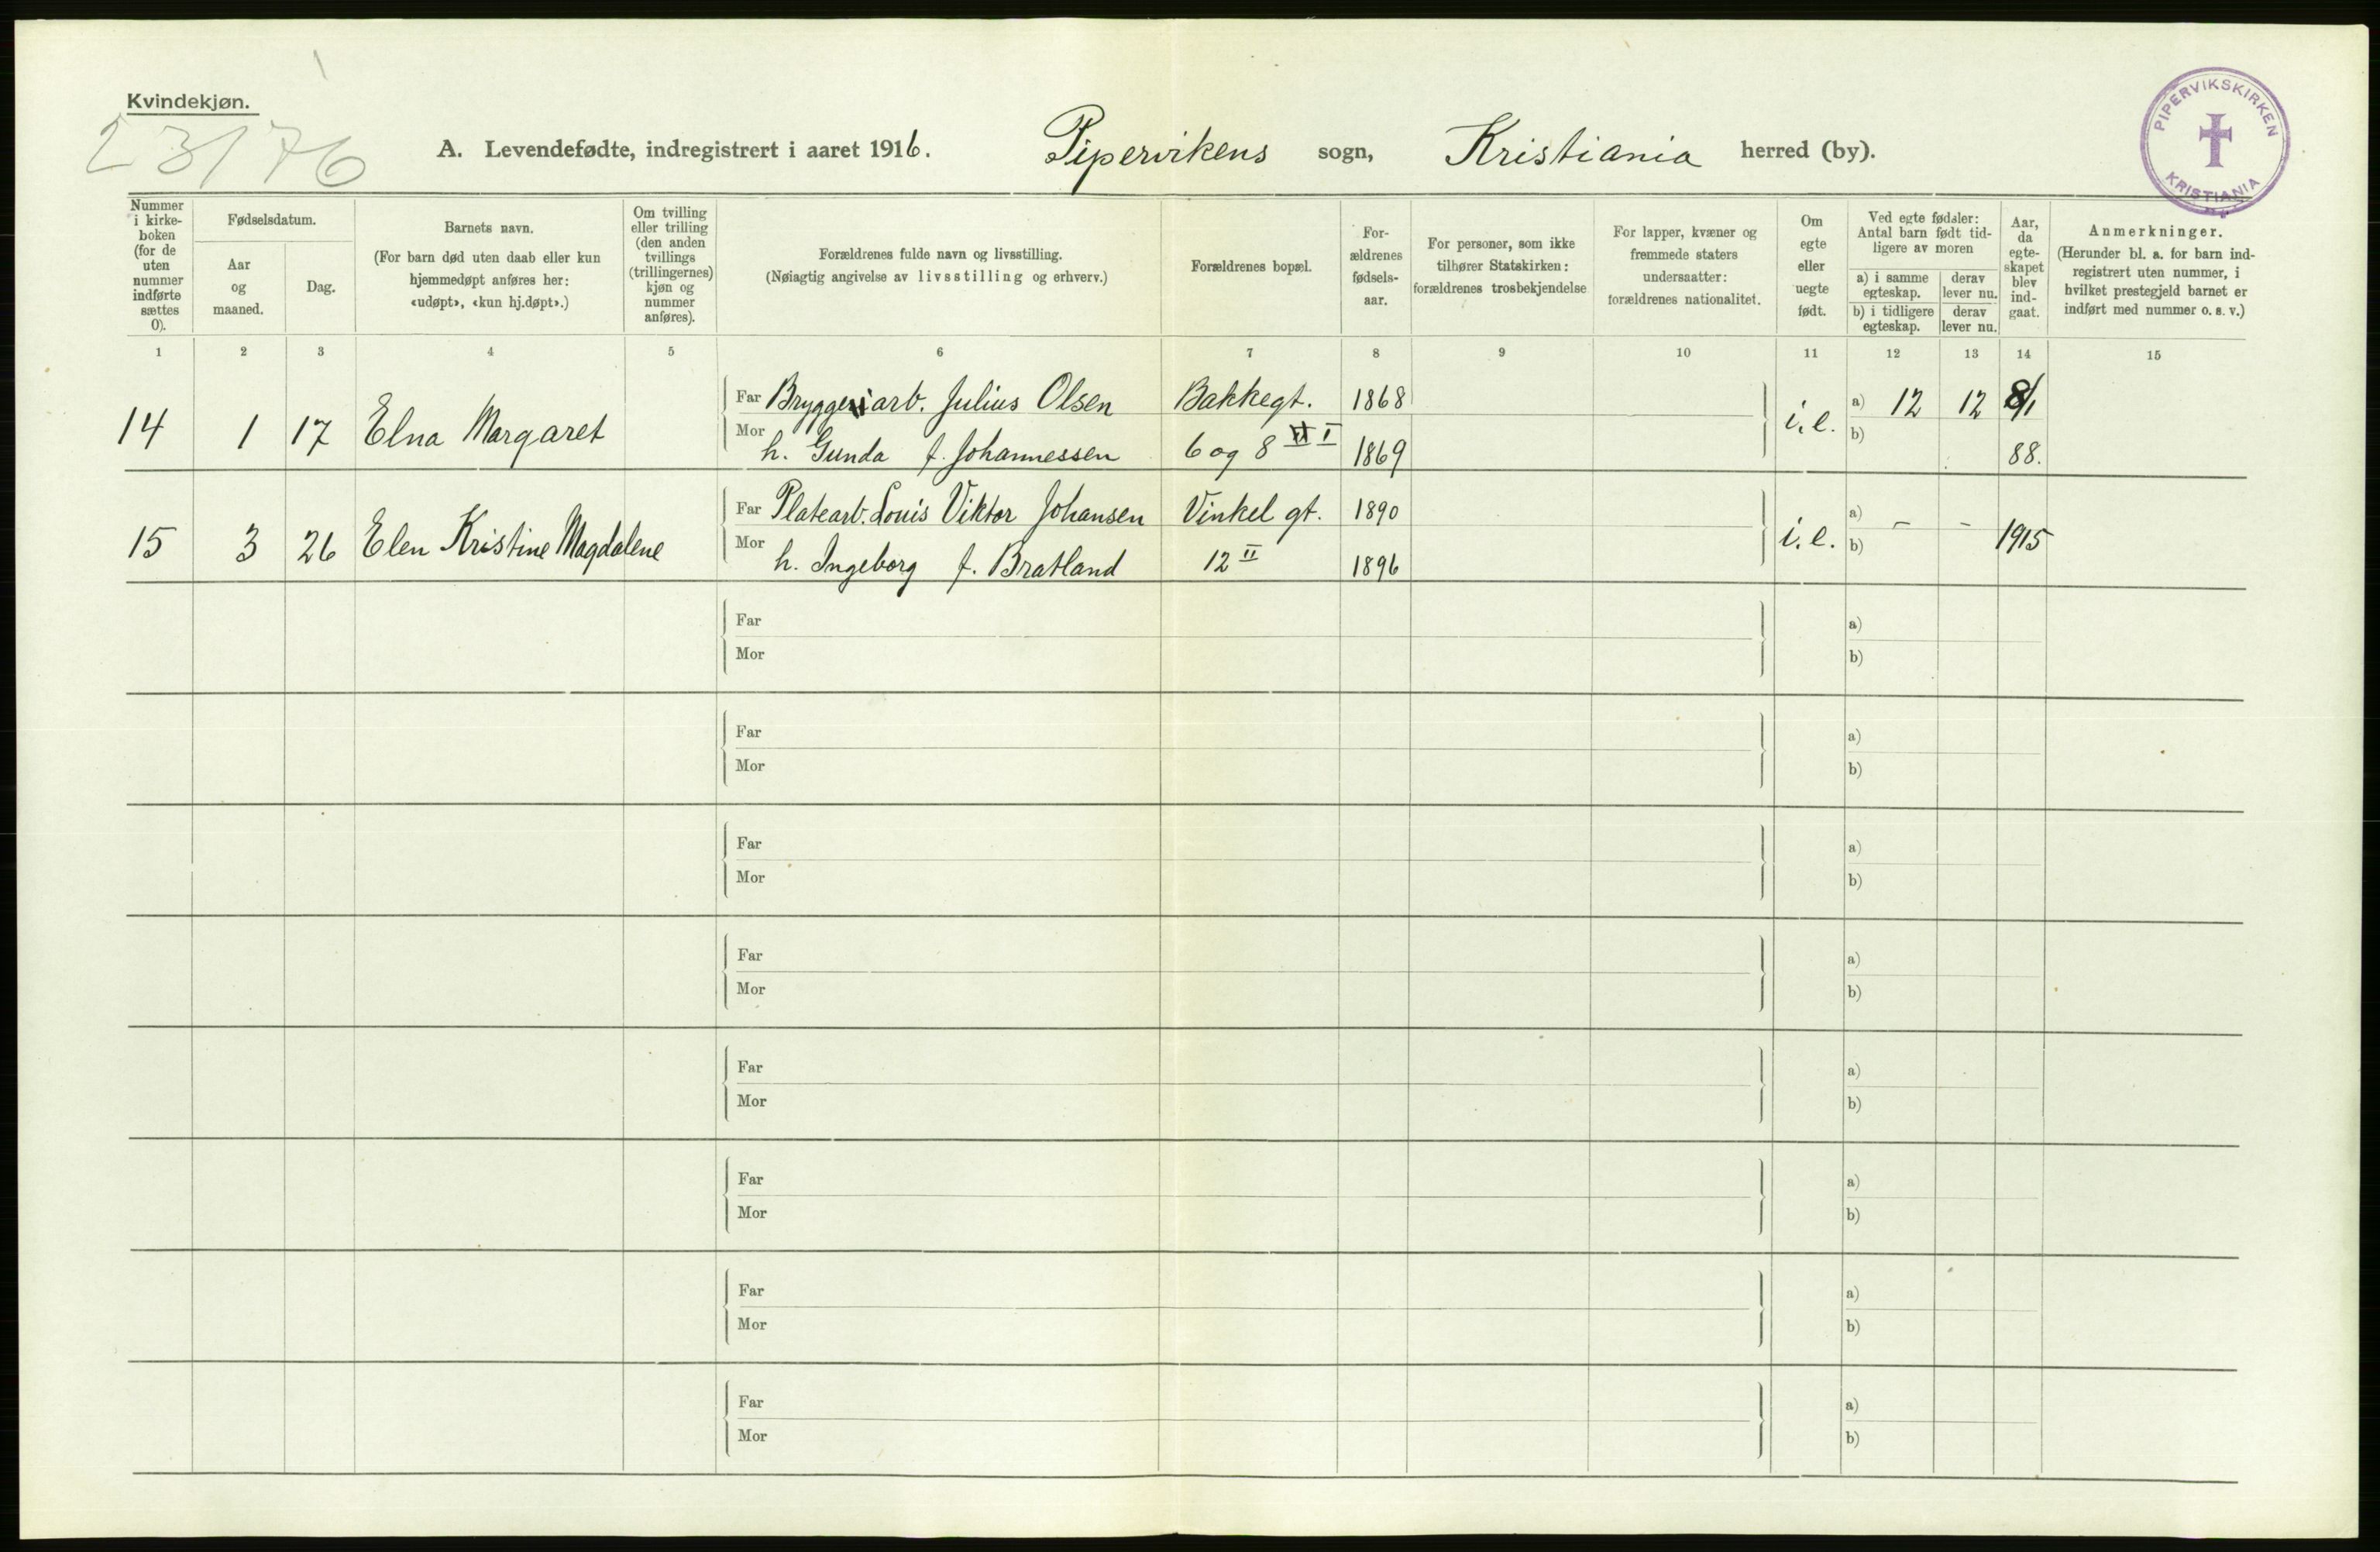 Kvindekjøn.
23176
A. Levendefødte, indregistrert i aaret 1916. Pipervikens sogn, Kristiania herred (by).
PIPERVIKSKIRKEN
KRISTIANIA
Nummer i kirke-boken (for de uten nummer indførte sættes 0).
Fødselsdatum.
Aar og maaned.
Dag.
Barnets navn.
(For barn død uten daab eller kun hjemmedøpt anføres her: «udøpt», «kun hj.døpt».)
Om tvilling eller trilling (den anden tvillings (trillingernes) kjøn og nummer anføres).
Forældrenes fulde navn og livsstilling.
(Nøiagtig angivelse av livsstilling og erhverv.)
Forældrenes bopæl.
For-ældrenes fødsels-aar.
For personer, som ikke tilhører Statskirken: forældrenes trosbekjendelse
For lapper, kvæner og fremmede staters undersaatter: forældrenes nationalitet.
Om egte eller uegte født.
Ved egte fødsler: Antal barn født tid-ligere av moren
a) i samme egteskap.
derav lever nu.
b) i tidligere egteskap.
derav lever nu.
Aar, da egte-skapet blev ind-gaat.
Anmerkninger.
(Herunder bl. a. for barn ind-registrert uten nummer, i hvilket prestegjeld barnet er indført med nummer o. s. v.)
1 2 3 4 5 6 7 8 9 10 11 12 13 14 15
Far Bryggeriarb. Julius Olsen Bakkegt. 1868 a) 12 12 8/1
14 1 17 Elna Margaret i. e.
Mor h. Gunda f. Johannessen 6 og 8 I 1869 b) 88.
Far Platearb. Louis Viktor Johansen Vinkel gt. 1890 a) - -
15 3 26 Elen Kristine Magdalene i. e. 1915
Mor h. Ingeborg f. Bratland 12 II 1896 b)
Far a)
Mor b)
Far a)
Mor b)
Far a)
Mor b)
Far a)
Mor b)
Far a)
Mor b)
Far a)
Mor b)
Far a)
Mor b)
Far a)
Mor b)